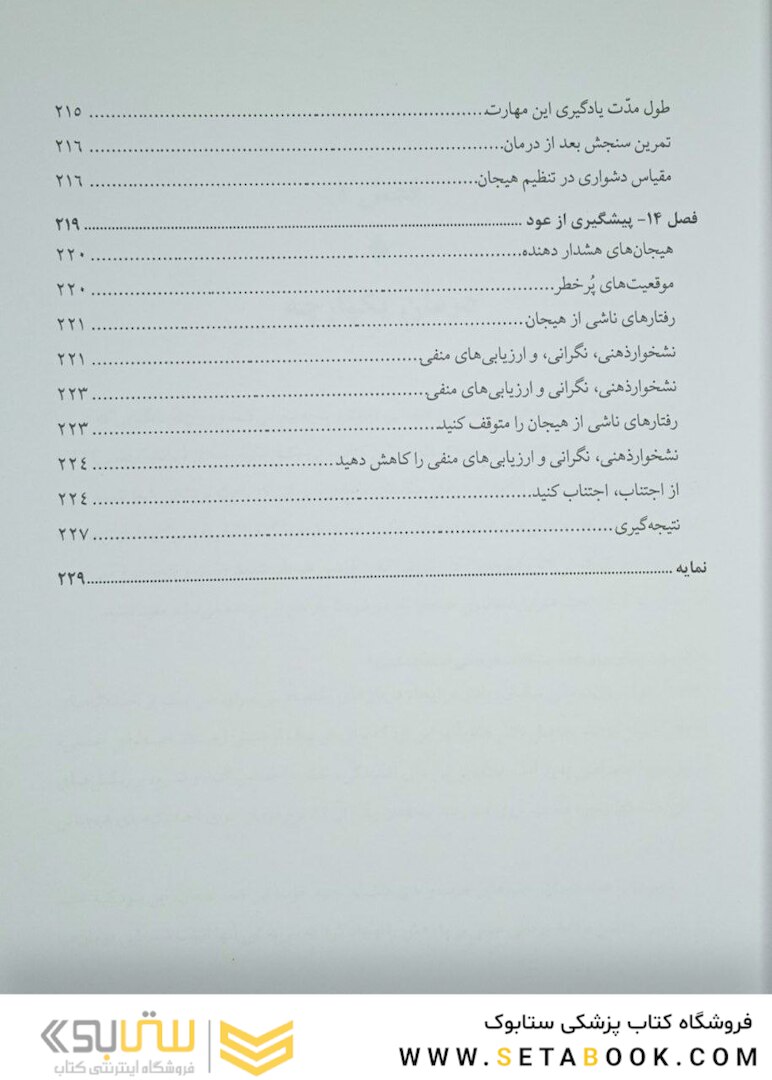 طول مدّت یادگیری این مهارت ........ ۲۱۵
تمرین سنجش بعد از درمان ........ ۲۱٦
مقیاس دشواری در تنظیم هیجان ........ ۲۱٦
فصل ۱۴- پیشگیری از عود ........ ۲۱۹
هیجان‌های هشدار دهنده ........ ۲۲۰
موقعیت‌های پُرخطر ........ ۲۲۰
رفتارهای ناشی از هیجان ........ ۲۲۱
نشخوارذهنی، نگرانی، و ارزیابی‌های منفی ........ ۲۲۱
نشخوارذهنی، نگرانی و ارزیابی‌های منفی ........ ۲۲۳
رفتارهای ناشی از هیجان را متوقف کنید ........ ۲۲۳
نشخوارذهنی، نگرانی و ارزیابی‌های منفی را کاهش دهید ........ ۲۲٤
از اجتناب، اجتناب کنید ........ ۲۲٤
نتیجه‌گیری ........ ۲۲۷
نمایه ........ ۲۲۹
فروشگاه کتاب پزشکی ستابوک
WWW.SETABOOK.COM
ستابوک
فروشگاه اینترنتی کتاب